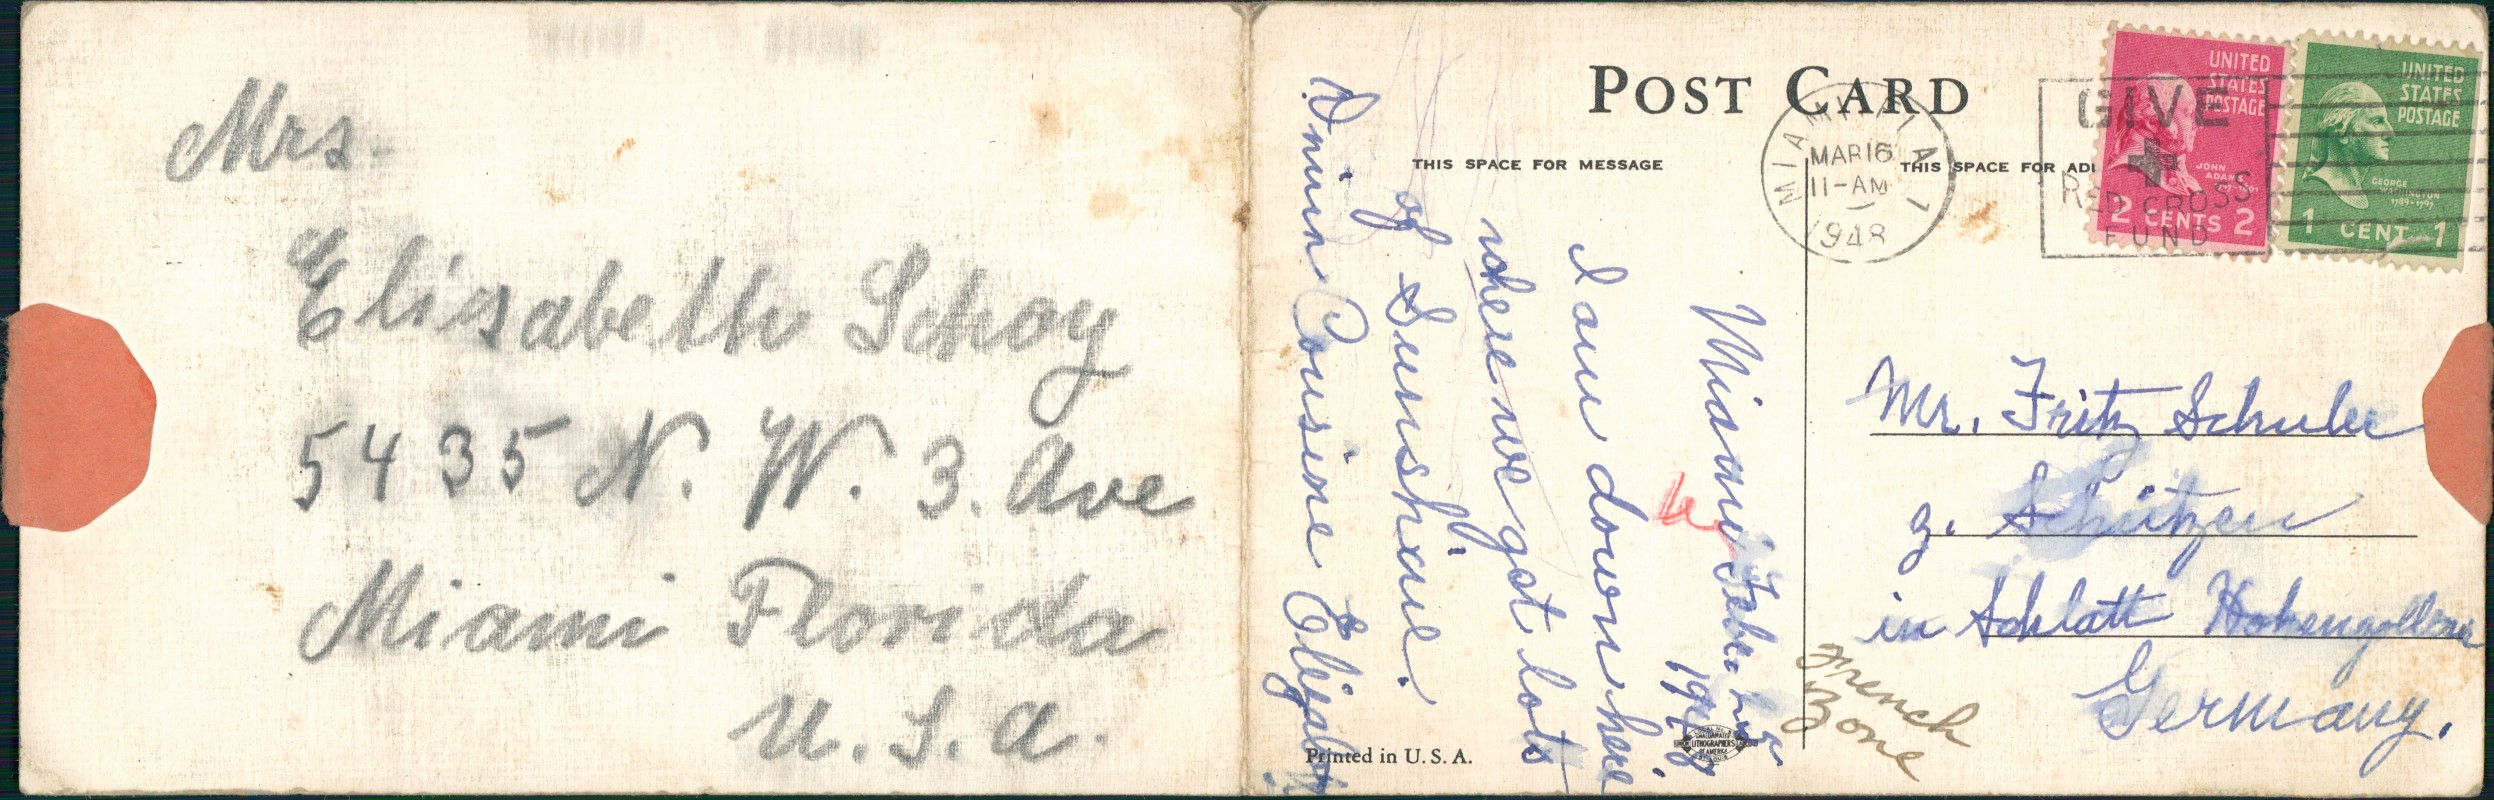 Mrs.
Elisabeth Schoy
5435 N. W. 3. Ave
Miami Florida
U. S. A.
POST CARD
THIS SPACE FOR MESSAGE
THIS SPACE FOR ADD
MIAMI FLA
MAR 16
11-AM
1948
GIVE
RED CROSS
FUND
UNITED
STATES
POSTAGE
JOHN
ADAMS
1797-1801
2 CENTS 2
UNITED
STATES
POSTAGE
GEORGE
WASHINGTON
1789-1797
1 CENT 1
Miami
I am down here
where we got lots
of Sunshine.
Cousine Elizabeth
Mr. Fritz Schuler
z. Schützen
in Schlatt Hohenzollern
Germany.
French
Zone
Printed in U. S. A.